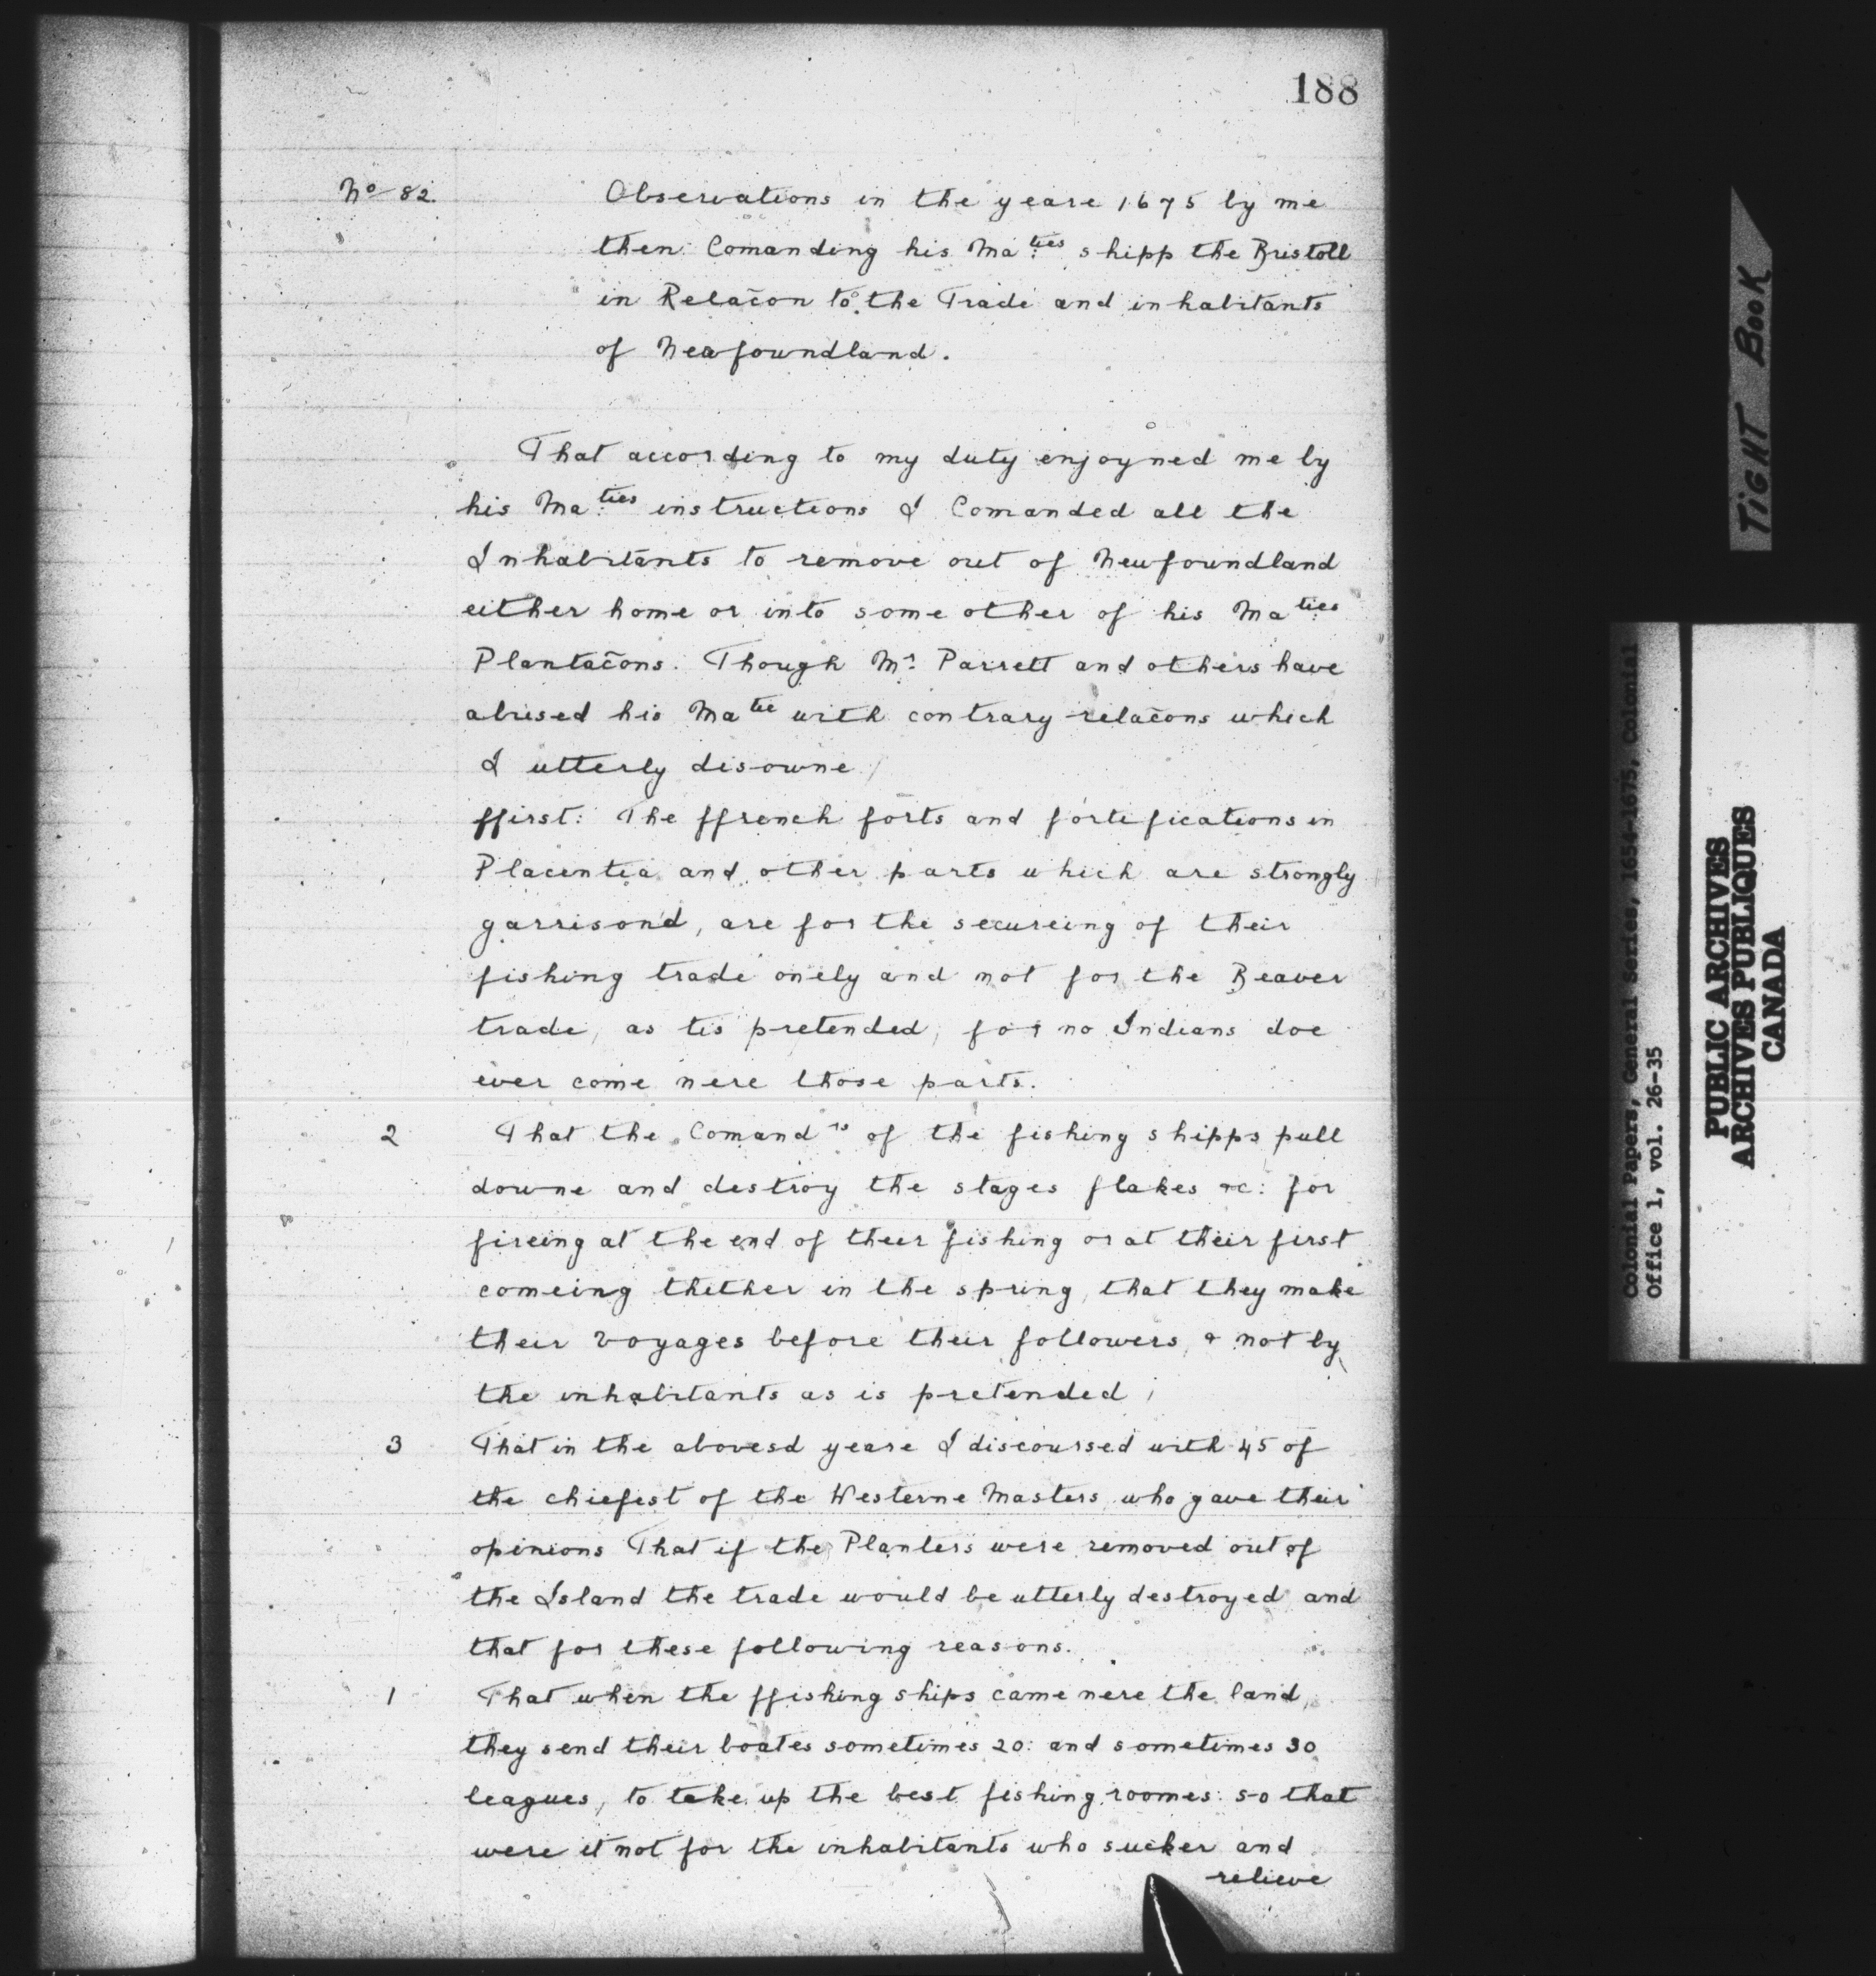 188
No 82.
Observations in the yeare 1675 by me
then Comanding his Ma:ties shipp the Bristoll
in Relac̃on to the Trade and inhabitants
of Newfoundland.
That according to my duty enjoyned me by
his Ma:ties instructions I Comanded all the
Inhabitants to remove out of Newfoundland
either home or into some other of his Ma:ties
Plantac̃ons. Though Mr. Parrett and others have
abused his Matie with contrary relac̃ons which
I utterly disowne /
ffirst: The ffrench forts and fortifications in
Placentia and other parts which are strongly
garrison'd, are for the secureing of their
fishing trade onely and not for the Beaver
trade, as tis pretended, for no Indians doe
ever come nere those parts.
2 That the Comandrs of the fishing shipps pull
downe and destroy the stages flakes &c: for
fireing at the end of their fishing or at their first
comeing thither in the spring, that they make
their voyages before their followers, & not by
the inhabitants as is pretended;
3 That in the abovesd yeare I discoursed with 45 of
the chiefest of the Westerne Masters, who gave their
opinions That if the Planters were removed out of
the Island the trade would be utterly destroyed and
that for these following reasons.
1 That when the ffishing ships came nere the land,
they send their boates sometimes 20: and sometimes 30
leagues, to take up the best fishing roomes: so that
were it not for the inhabitants who sucker and
relieve
TIGHT BOOK
Colonial Papers, General Series, 1654-1675, Colonial
Office 1, vol. 26-35
PUBLIC ARCHIVES
ARCHIVES PUBLIQUES
CANADA